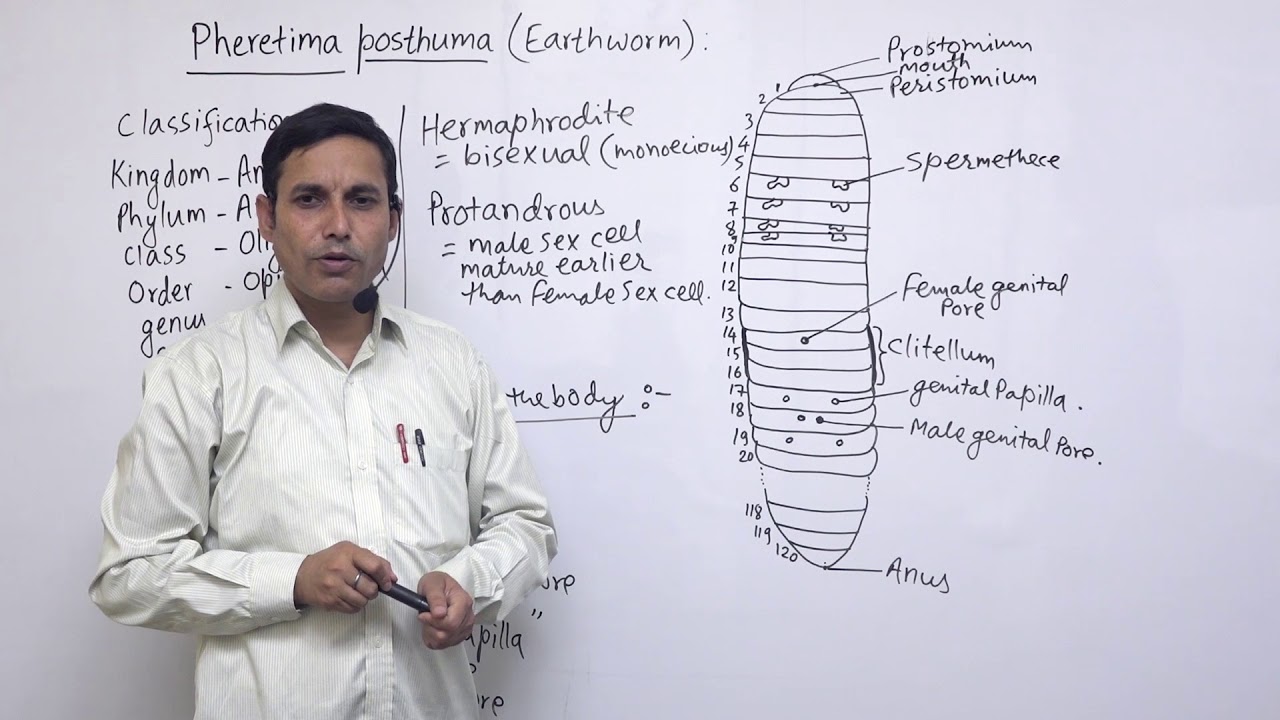 Pheretima posthuma (Earthworm):
Classification
Kingdom - An
Phylum - A
Class - Oli
Order - Opi
genus
Hermaphrodite
= bisexual (monoecious)
Protandrous
= male sex cell
mature earlier
than female sex cell.
the body :-
ure
apilla "
Prostomium
mouth
Peristomium
Spermethece
Female genital
Pore
Clitellum
genital Papilla.
Male genital Pore.
Anus
1
2
3
4
5
6
7
8
9
10
11
12
13
14
15
16
17
18
19
20
118
119
120